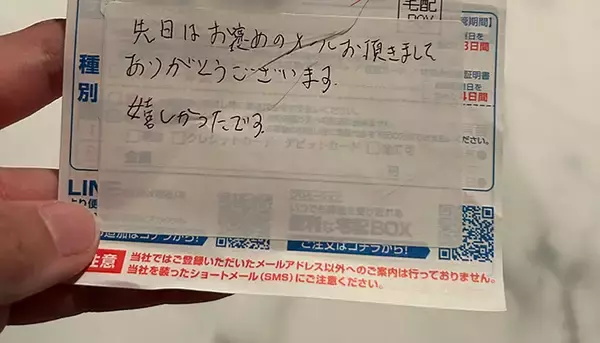 宅配
BOX
先日はお褒めのメールお頂きまして
ありがとうございます.
嬉しかったです.
期間】
日を
3日間
証明書
日を
4日間
種
別
ださい。
クレジットカード
デビットカード
金額
LIN
より便
宅配BOX
追加はコチラから!
ご注文はコチラから!
注意
当社ではご登録いただいたメールアドレス以外へのご案内は行っておりません。
当社を装ったショートメール(SMS)にご注意ください。